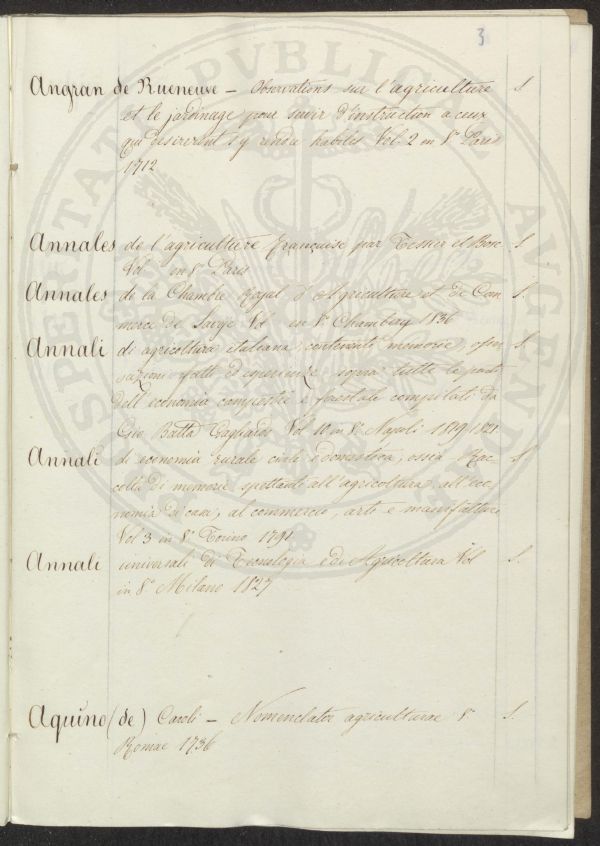 3
Angran de Rueneuve – Observations sur l'agriculture S
et le jardinage pour servir d'instruction a ceux
qui desireront s'y rendre habiles Vol. 2 in 8º Paris
1712
Annales de l'agriculture françoise par Tessier et Bosc S.
Vol in 8º Paris
Annales de la Chambre Royal d'Agriculture et de Com S.
merce de Savoje Vol in 8º Chambery 1836
Annali di agricoltura italiana, contenente memorie, osser S.
vazioni fatti d'esperienze sopra tutte le parti
dell'economia campestre e forestale compilati da
Gio Batta Gagliardo Vol 10 in 8º Napoli 1819-1821
Annali di economia rurale civile e domestica, ossia Rac S
colta di memorie spettanti all'agricoltura, all'eco
nomia di casa, al commercio, arti e manifatture
Vol 3 in 8º Torino 1791
Annali universali di Tecnologia e di Agricoltura Vol S.
in 8º Milano 1827
Aquino (de) Caroli – Nomenclator agriculturae 8º S.
Romae 1736
PUBLICA
AUGENDAE
PROSPERITATI